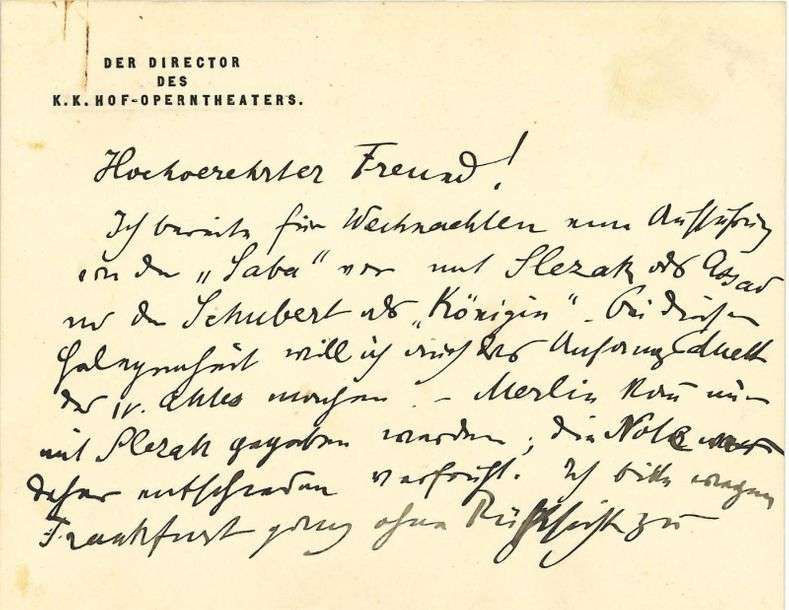 DER DIRECTOR
DES
K. K. HOF-OPERNTHEATERS.
Hochverehrter Freund!
Ich bereite für Weihnachten eine Aufführung
von der „Saba“ vor mit Slezak als Assad
und der Schubert als „Königin“ – bei dieser
Gelegenheit will ich auch das Anfangsduett
des IV. Aktes machen. – Merlin kann nur
mit Slezak gegeben werden; die Notiz war
daher entschieden verfrüht. Ich bitte wegen
Frankfurt ganz ohne Rücksicht zu